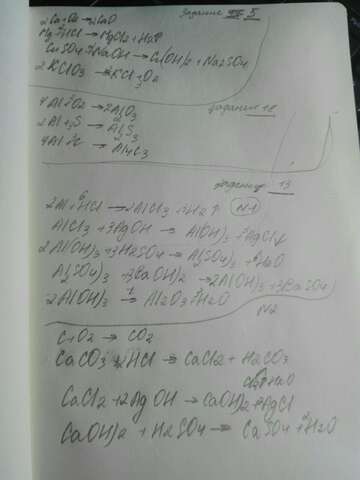 Задание 5
2Ca+O2→2CaO
Mg+2HCl→MgCl2+H2↑
CuSO4+2NaOH→Cu(OH)2+Na2SO4
2KClO3→2KCl+3O2
задание 18
4Al+3O2→2Al2O3
2Al+3S→Al2S3
4Al+3C→Al4C3
задание 13
N1
2Al+6HCl→2AlCl3+3H2↑
AlCl3+3AgOH→Al(OH)3+3AgCl↓
2Al(OH)3+3H2SO4→Al2(SO4)3+6H2O
Al2(SO4)3+3Ba(OH)2→2Al(OH)3+3BaSO4
2Al(OH)3→Al2O3+3H2O
N2
C+O2→CO2
CaCO3+2HCl→CaCl2+H2CO3
CaCl2+2AgOH→Ca(OH)2+2AgCl
Ca(OH)2+H2SO4→CaSO4+2H2O